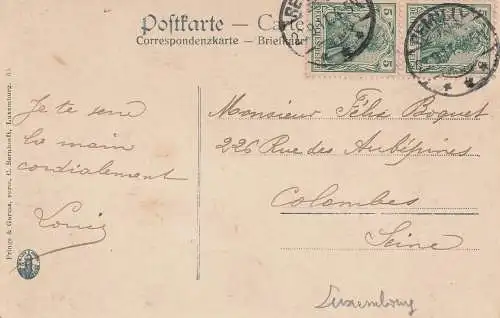 Postkarte — Carte
Correspondenzkarte — Briefkaart
5
5
REMILLY
Je te serre
la main
cordialement
Louis
Monsieur Félix Boquet
226 Rue des Aubépines
Colombes
Seine
Luxembourg